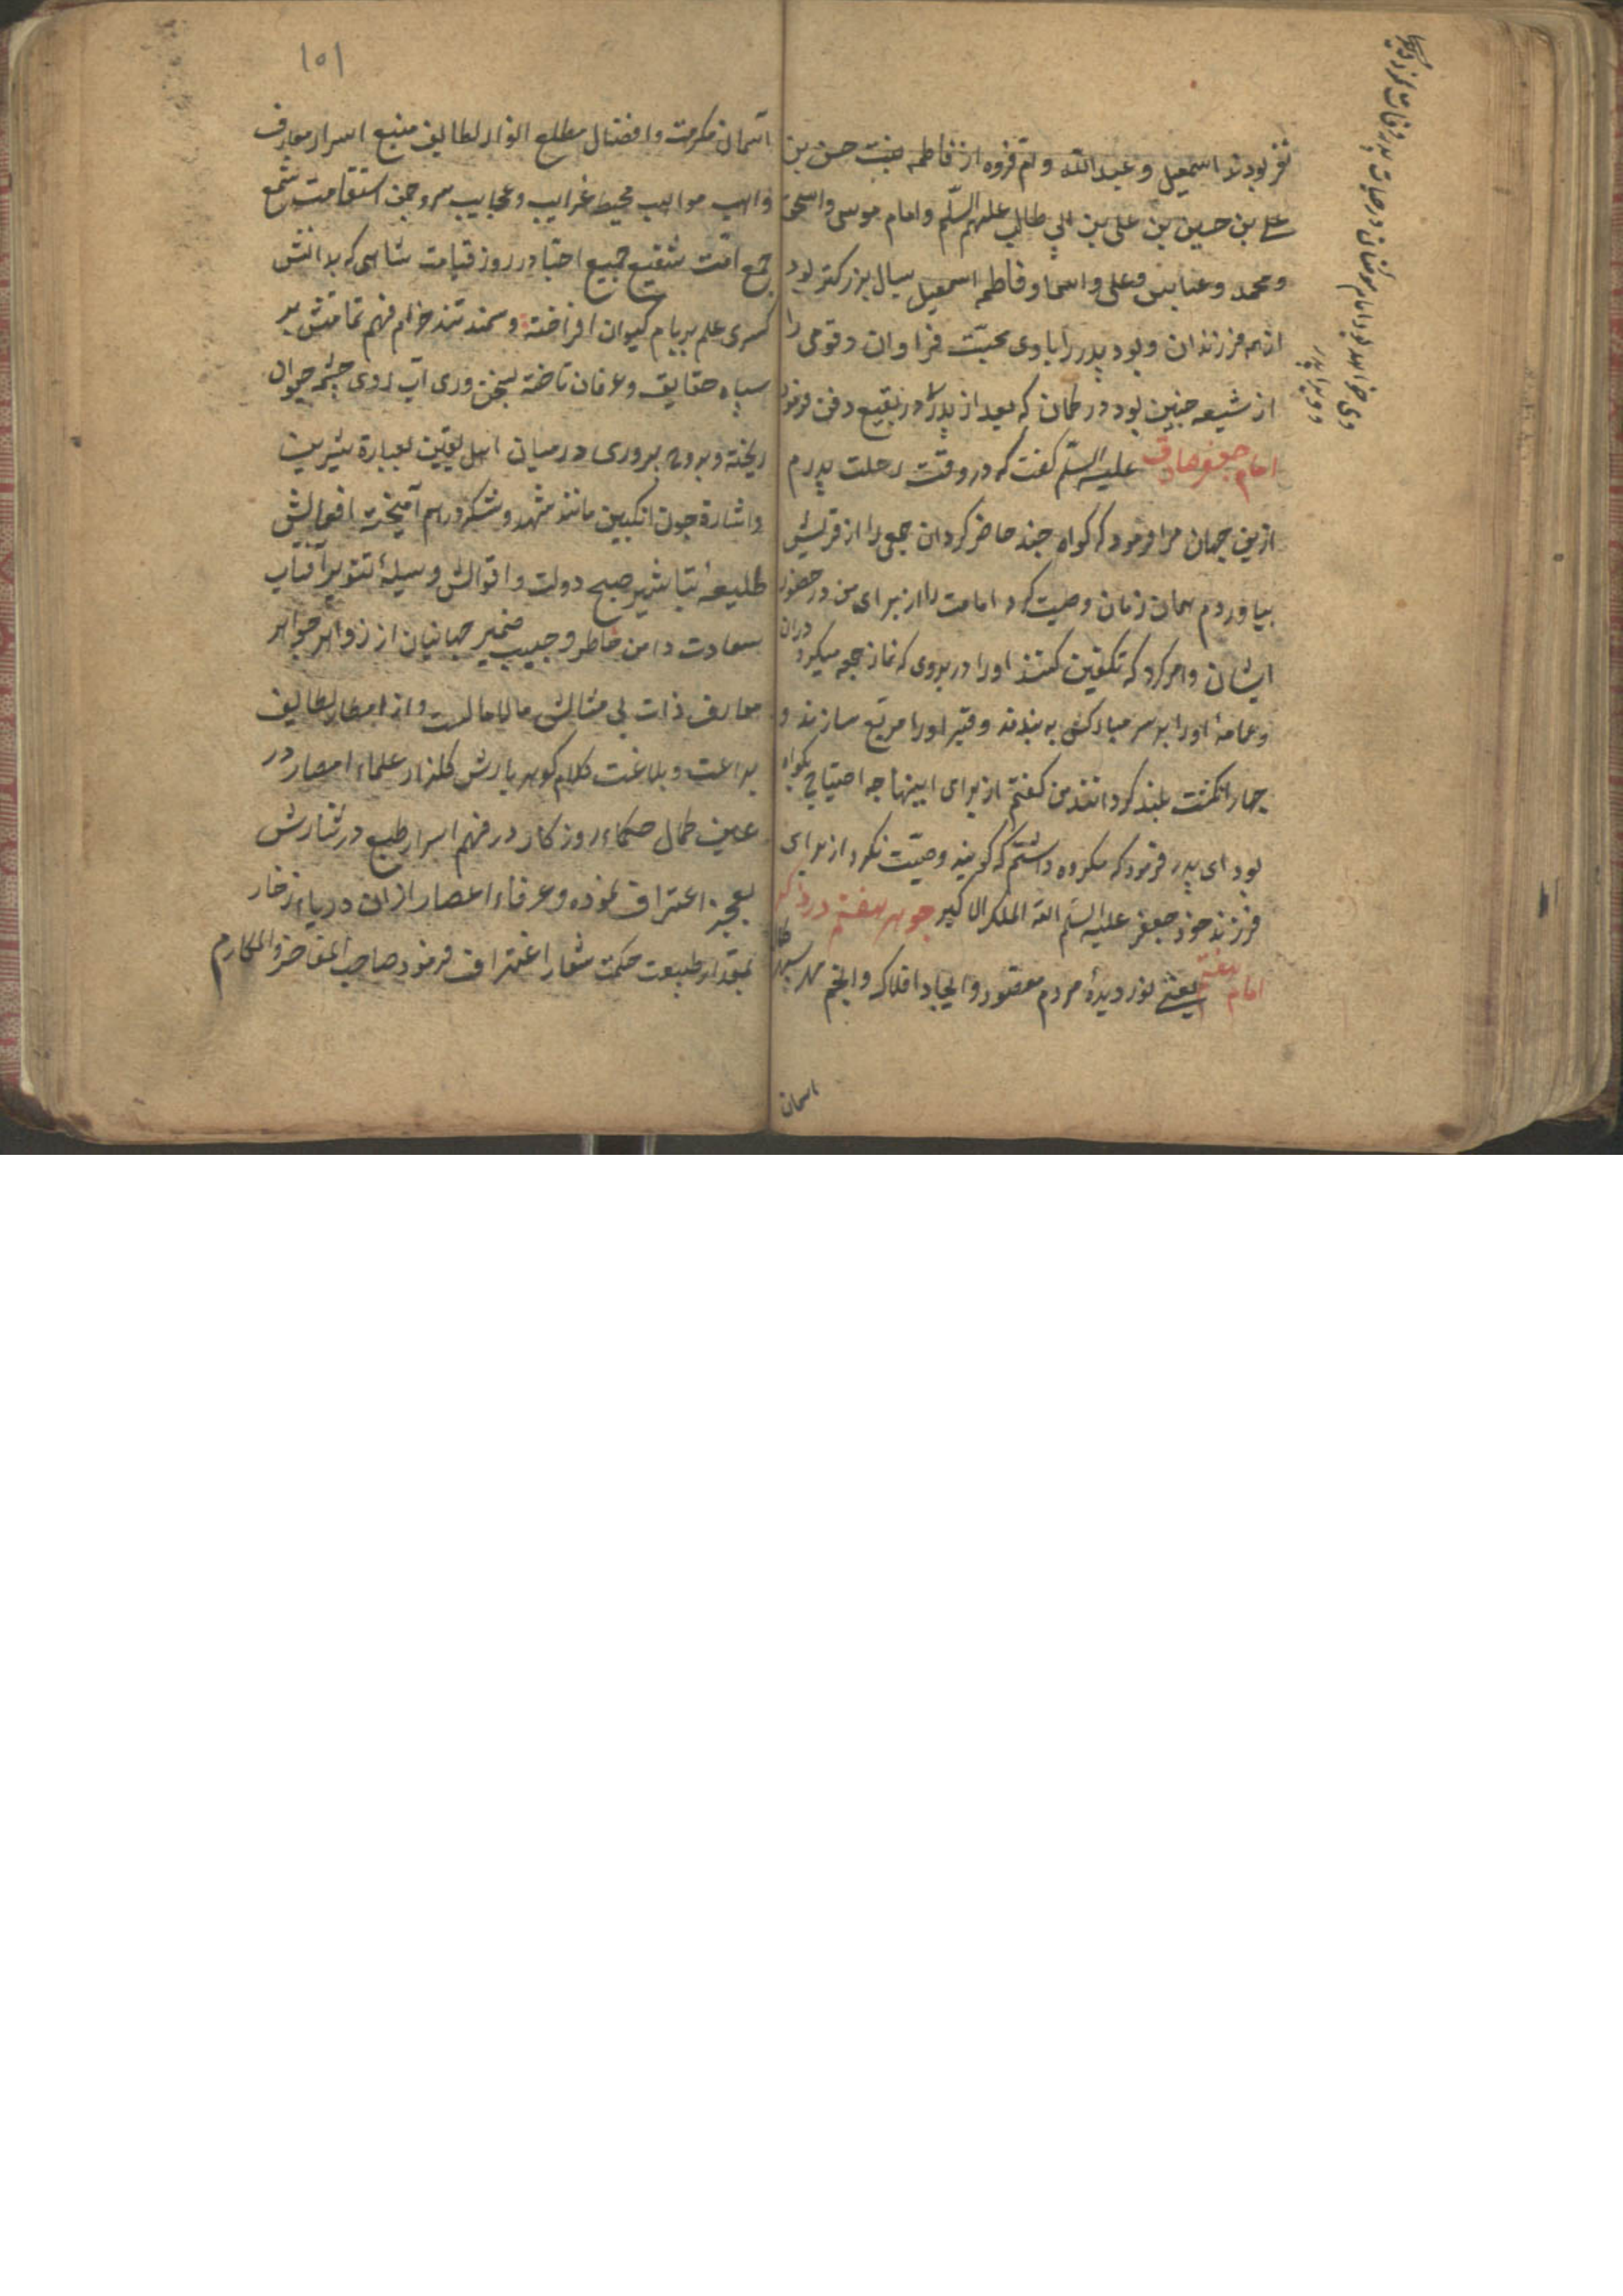 نفر بودند اسمعیل و عبدالله و ام فروه از فاطمه بنت حسن بن
علی بن حسین بن علی بن ابی طالب علیهم السلم و امام موسی و اسحق
و محمد و عباس و علی و اسما و فاطمه اسمعیل بسال بزرکتر بود
از همه فرزندان و بود پدر را با وی محبت فراوان و قومی را
از شیعه چنین بود در کمان که بعد از پدر در بقیع دفن فرمود
امام جعفر صادق علیه السلم گفت که در وقت رحلت پدرم
ازین جهان مرا فرمود که کواه چند حاضر کردان جمعی را از قریش
بیاوردم همان زمان وصیت کرد امامت را از برای من در حضور
ایشان و امر کرد که تکفین کنند او را در بردی که نماز جمعه میکرد دران
و عمامهٔ او را بر سر مبارکش به بندند و قبر او را مربع سازند و
چهار انکشت بلند کردانند من کفتم از برای اینها چه احتیاج بکواه
بود ای پدر فرمود که مکروه داشتم که کویند وصیت نکرد از برای
فرزند خود جعفر علیه السلم الله الملک الاکبر جوهر هفتم در ذکر
امام هفتم یعنی نور دیدهٔ مردم مقصود و ایجاد افلاک و انجم مهر سپهر
اسمان
وی برادر
۱۵۱
آسمان مکرمت و افضال مطلع انوار لطایف منبع اسرار معارف
واهب مواهب محیط غرایب و عجایب سرو چمن استقامت شمع
جمع امت شفیع جمیع احبا در روز قیامت شاهی که بدانش
کسری علم بر بام کیوان افراخته و سمند تند خرام فهم تمامتش بر
سپاه حقایق و عرفان تاخته بسخن وری آب روی چشمه حیوان
ریخته و بروح پروری در میان اهل یقین بعبارة شیرین
و اشارة چون انکبین مانند شهد و شکر در هم آمیخت افعالش
طلیعهٔ تباشیر صبح دولت و اقوالش وسیلهٔ تنویر آفتاب
سعادت دامن خاطر و جیب ضمیر جهانیان از زواهر جواهر
معارف ذات بی مثالش مالامالست و از امطار لطایف
براعت و بلاغت کلام کوهر بارش کلزار علماء امصار در
عین کمال حکماء روزکار در فهم اسرار طبع در نثارش
بعجز اعتراف نموده و عرفاء اعصار از ان دریاء زخار
بمقدار طبیعت حکمت شعار اغتراف فرمود صاحب المفاخر و المکارم